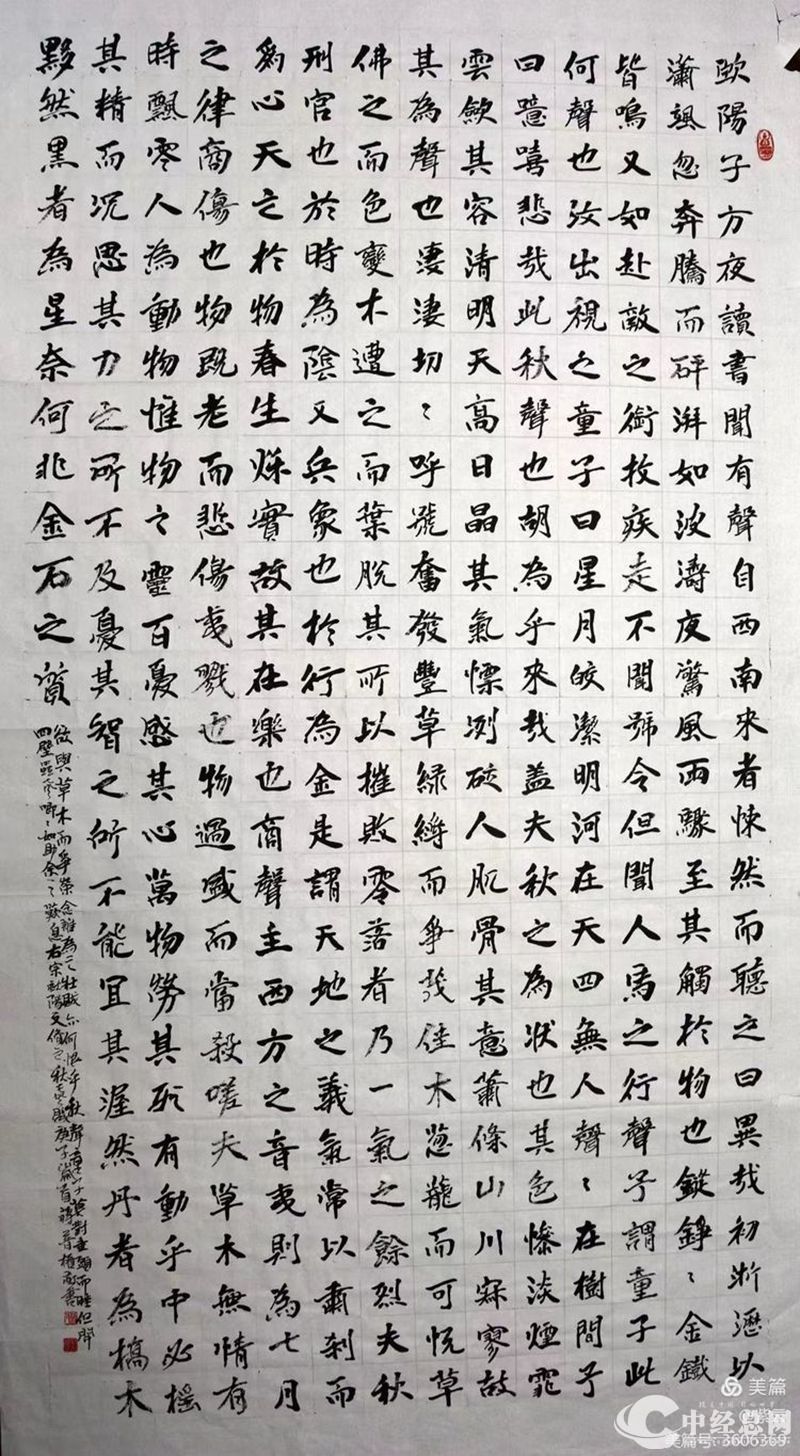 欧陽子方夜讀書聞有聲自西南來者悚然而聽之曰異哉初淅瀝以
瀟颯忽奔騰而砰湃如波濤夜驚風雨驟至其觸於物也鏦錚〻金鐵
皆鳴又如赴敵之銜枚疾走不聞號令但聞人馬之行聲予謂童子此
何聲也汝出視之童子曰星月皎潔明河在天四無人聲〻在樹間予
曰噫嘻悲哉此秋聲也胡為乎來哉蓋夫秋之為狀也其色慘淡煙霏
雲斂其容清明天高日晶其氣慄冽砭人肌骨其意蕭條山川寂寥故
其為聲也淒淒切〻呼號奮發豐草綠縟而爭茂佳木蔥蘢而可悅草
佛之而色變木遭之而葉脫其所以摧敗零落者乃一氣之餘烈夫秋
刑官也於時為陰又兵象也於行為金是謂天地之義氣常以肅剎而
為心天之於物春生秌實故其在樂也商聲主西方之音夷則為七月
之律商傷也物既老而悲傷夷戮也物過盛而當殺嗟夫草木無情有
時飄零人為動物惟物之靈百憂感其心萬物勞其形有動乎中必搖
其精而況思其力之所不及憂其智之所不能宜其渥然丹者為槁木
黟然黑者為星奈何非金石之質
欲與草木而爭榮念誰為之壯賊亦何恨乎秋聲童子莫對垂頭而睡但聞
四壁蟲聲唧〻如助余之歎息右宋歐陽文
美篇
中经总网
美篇号:3606369